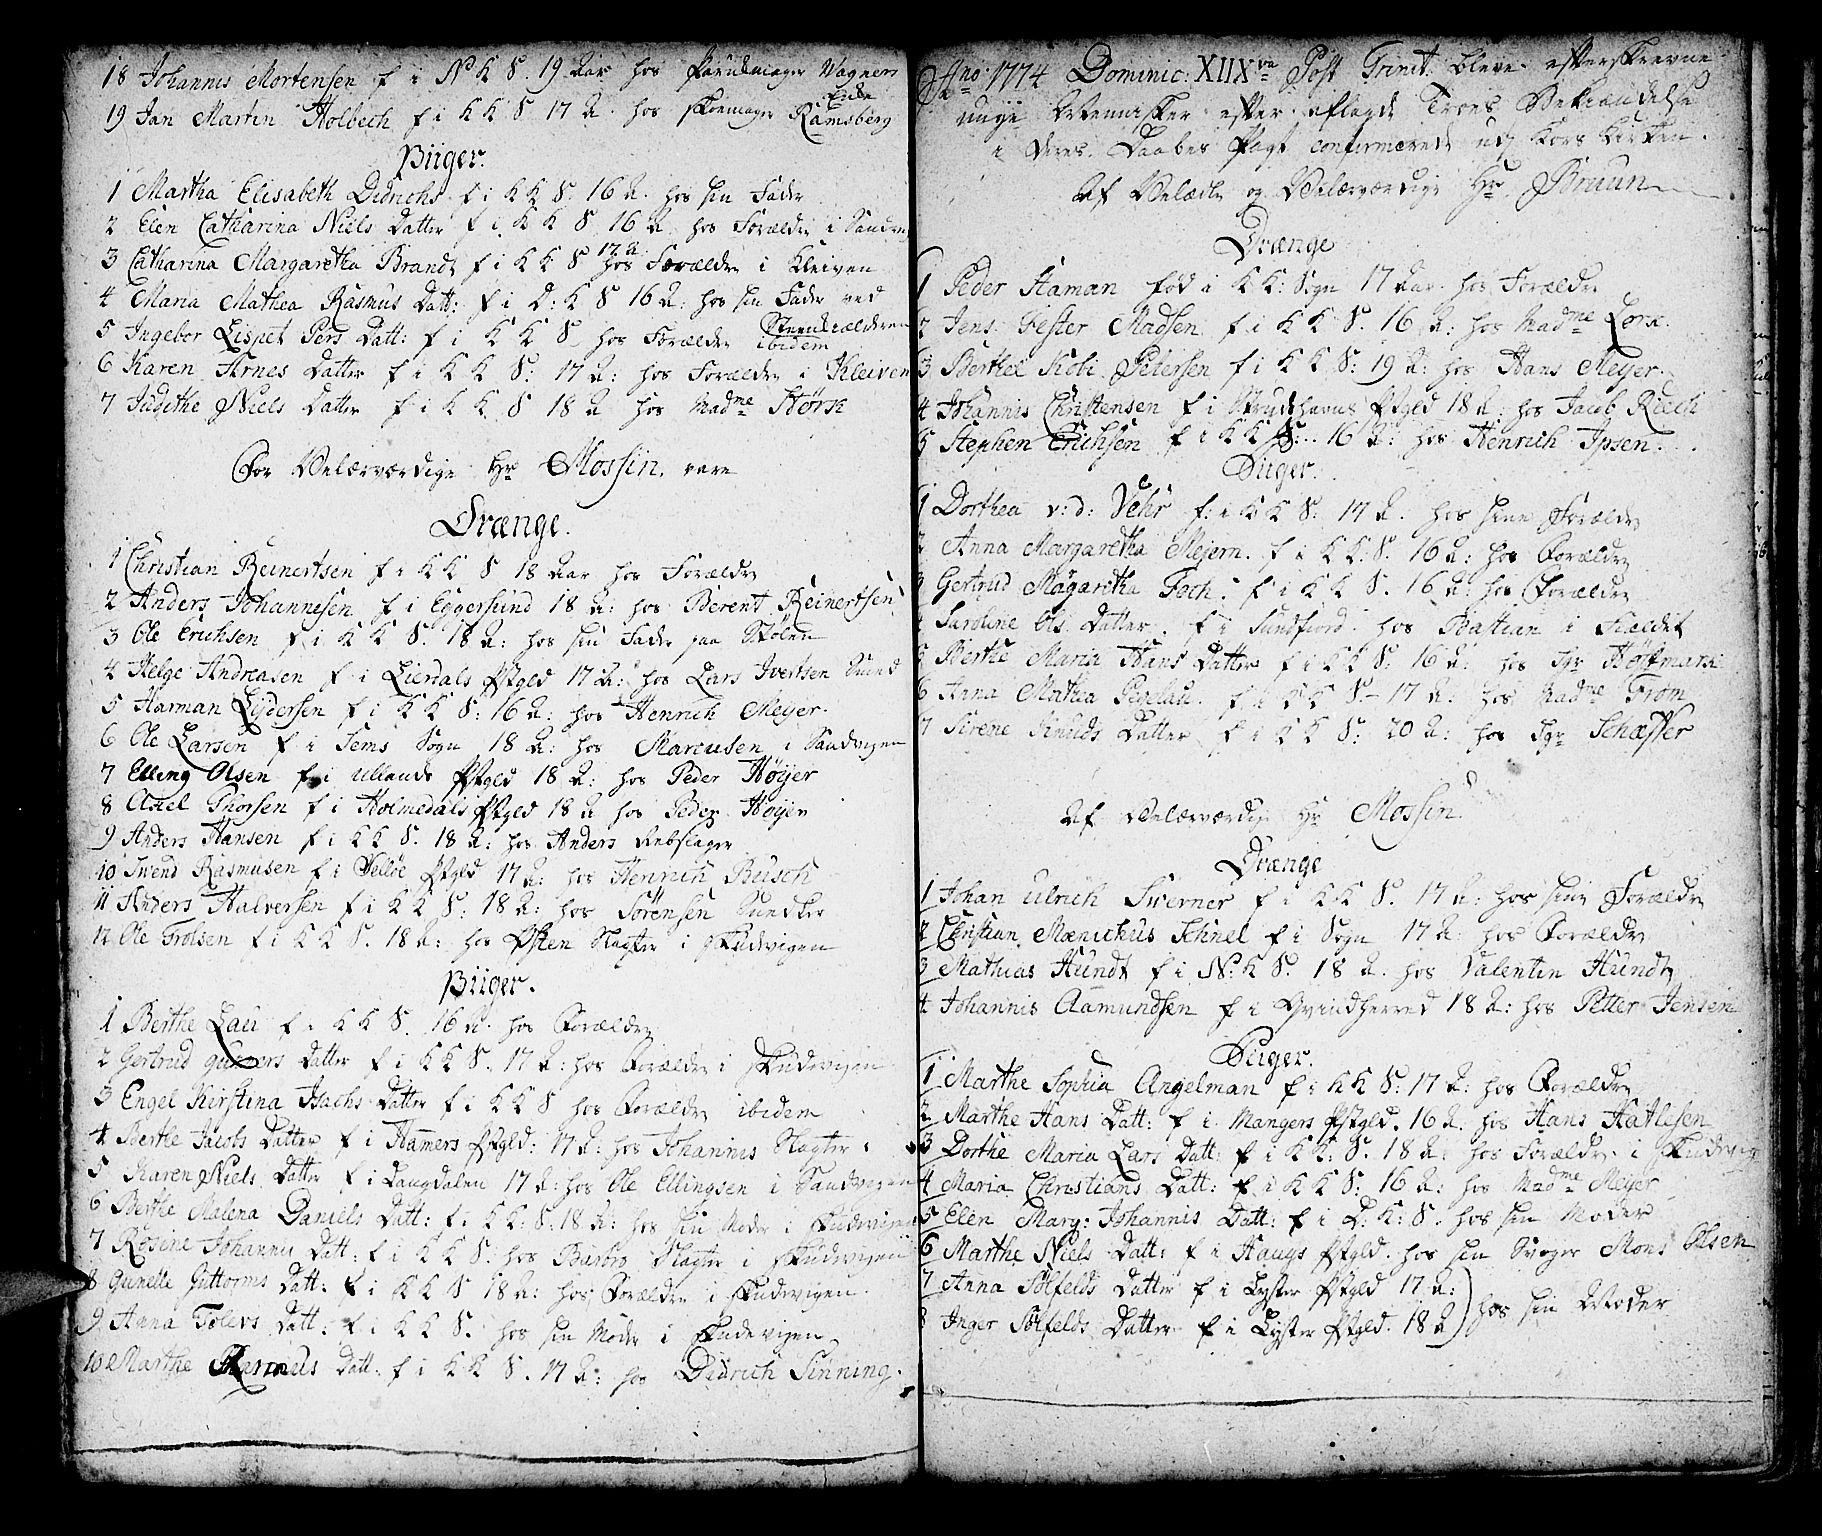 18 Johannis Mortensen f i N K S. 19 Aar hos Parucmager Wagners
Enke
19 Jan Martin Holbech f i K K S 17 A. hos Skoemager Ramsberg
Piiger.
1 Martha Elisabeth Didrichs f i K K S. 16 A. hos sin Fader
2 Elen Catharina Niels Datter f i K K S 16 A. hos Forældre i Sandv
3 Catharina Margaretha Brandt f i K K S 17 A hos Forældre i Kleiven
4 Maria Mathea Rasmus Datt: f i D: K S 16 A: hos sin Fader ved
Steenkielderen
5 Ingebor Lispet Pers Datt: f i K K S hos Forældre ibidem
6 Karen Arnes Datter f i K K S: 17 A: hos Forældre i Kleiven
7 Judithe Niels Datter f i K K S 18 A hos Madme Størk
For Velærværdige Hr Mossin, vare
Drænge.
1 Christian Reinertsen f i K K S 18 Aar hos Forældre
2 Anders Johannesen f i Eggersund 18 A: hos Berent Reinertsen
3 Ole Erichsen f i K K S. 18 A: hos sin Fader paa Stølen
4 Helge Andreasen f i Lierdals Pstgld 17 A: hos Lars Ivertsen Sund
5 Harman Lydersen f i K K S: 16 A: hos Henrich Meyer.
6 Ole Larsen f i Sems Sogn 18 A: hos Marcusen i Sandvigen
7 Elling Olsen f i Ullands Pstgld 18 A: hos Peder Høijer
8 Axel Thorsen f i Holmedals Pstgld 18 A hos Peder Høijer
9 Anders Hansen f i K K S. 18 A: hos Anders Rebslager
10 Swend Rasmusen f i Pstgld 17 A: hos Henrich Busch
11 Anders Halversen f i K K S: 18 A: hos Sørensen
12 Ole Trolsen f i K K S. 18 A: hos Østen Slagter i Skudevigen
Piiger.
1 Berthe Lau f i K K S. 16 A. hos Forældre
2 Gertrud Gunners Datter f i K K S. 17 A: hos Forældre i Skudevigen
3 Engel Kirstina Isachs Datter f i K K S hos Forældre ibidem
4 Berthe Jacobs Datter f i Hamers Pstgld: 17 A: hos Johannis Slagter
5 Karen Niels Datter f i Langdalen 17 A: hos Ole Ellingsen i Sandvigen
6 Berthe Malena Daniels Datt: f i K K: S: 18 A: hos sin Moder i Skudevigen
7 Rosine Johannis Datt: f i K K S: hos Barbro Slagter i Skudevigen
8 Gunelle Guttorms Datt: f i K K S 18 A: hos Forældre i Skudevigen.
9 Anna Tolevs Datt: f i K K S. hos sin Moder i Skudevigen
10 Marthe Rasmus Datt. f i K K S. 17 A: hos Didrich Sinning.
Ano: 1774 Dominic: XIIXve Post Trinit: bleve efterskrevne
unge Mennisker efter aflagde Troes Bekiendelse
i deres Daabes Pagt confirmerede udj Kors Kirken.
Af Velædle og Velærværdige Hr. Bruun
Drænge
1 Peder Haman fød i K K: Sogn 17 Aar. hos Forældre
2 Jens Fester Madsen f i K K S. 16 A: hos Madme Lork.
3 Berthel Kobi Petersen f i K K S: 19 A: hos Hans Meyer.
4 Johannis Christensen f i Strudshavns Pstgld 18 A: hos Jacob Riech
5 Stephen Erichsen f i K K S: 16 A: hos Henrich Ipsen.
Piiger.
1 Dorthea v: d: Vehr f: i K K S: 17 A. hos sine Forældre
2 Anna Margaretha Mejern. f i K K: S. 16 A: hos Forældre
3 Gertrud Magaretha Foch. f i K K S. 16 A: hos Forældre
4 Caroline Ols Datter. f i Sundfiord hos Bastian i Fieldet
5 Berthe Maria Hans Datter f i K K S: 16 A: hos Sgr Hoffmann
6 Anna Mathea Pegelau. f i K K S- 17 A: hos Madme From
7 Sirene Knuds Datter f i K K S: 20 A: hos Sgr Schæffer
Af Velærværdige Hr Mossin
Drænge
1 Johan Ulrich Swerner f i K K S. 17 A: hos sine Forældre
2 Christian Mænichus Schnel f i Sogn 17 A: hos Forældre
3 Mathias Hundt f i N: K S. 18 A. hos Valentin Hundt
4 Johannis Aamundsen f i Qvindherred 18 A: hos Petter Jensen
Piiger.
1 Marthe Sophia Angelman f i K K S: 17 A: hos Forældre
2 Marthe Hans Datt: f i Mangers Pstgld. 16 A: hos Hans Hatlesen
3 Dorthe Maria Lars Datt: f i K K: S. 18 A: hos Forældre i Skudevig
4 Maria Christians Datt: f i K K S: 16 A: hos Madme Meyer
5 Elen Marg: Johannis Datt: f i D: K: S. hos sin Moder
6 Marthe Niels Datt: f i Haugs Pstgld. hos sin Svoger Mons Olsen
7 Anna Solfelds Datter f i Lyster Pstgld 17 A:
8 Inger Solfelds Datter f i Lyster Pstgld. 18 A) hos sin Moder